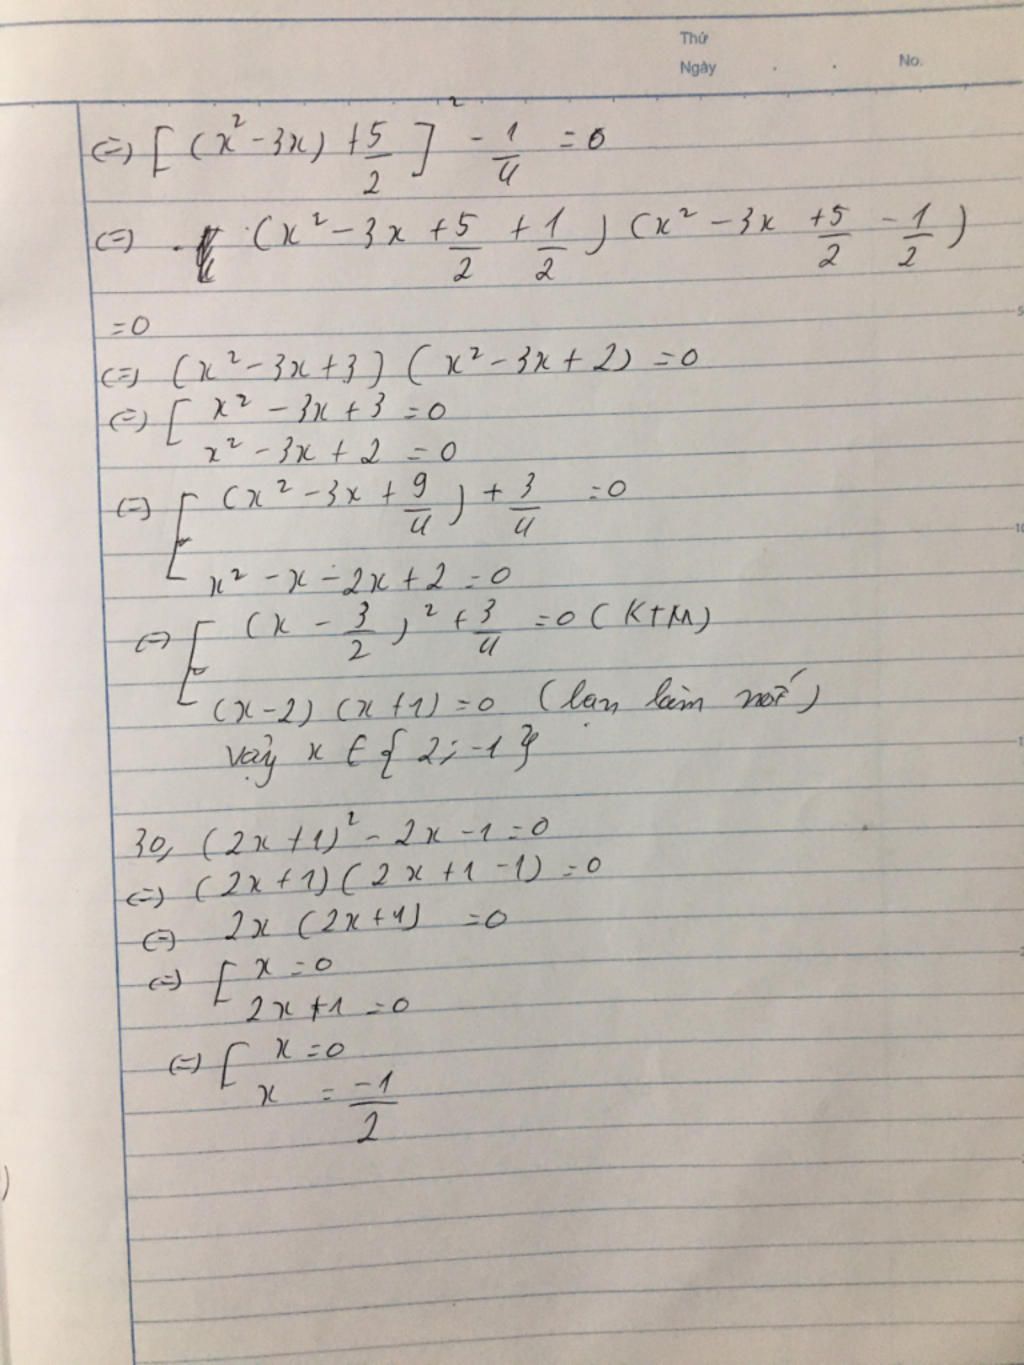 Thứ
Ngày . . No.
(=) [(x² - 3x) + 5/2]² - 1/4 = 0
(=) (x² - 3x + 5/2 + 1/2) (x² - 3x + 5/2 - 1/2)
= 0
(=) (x² - 3x + 3) (x² - 3x + 2) = 0
(=) [ x² - 3x + 3 = 0
x² - 3x + 2 = 0
(=) [ (x² - 3x + 9/4) + 3/4 = 0
x² - x - 2x + 2 = 0
(=) [ (x - 3/2)² + 3/4 = 0 (KTM)
(x - 2) (x + 1) = 0 (bạn làm nốt)
vậy x ∈ {2; -1}
30, (2x + 1)² - 2x - 1 = 0
(=) (2x + 1) (2x + 1 - 1) = 0
(=) 2x (2x + 1) = 0
(=) [ x = 0
2x + 1 = 0
(=) [ x = 0
x = -1/2